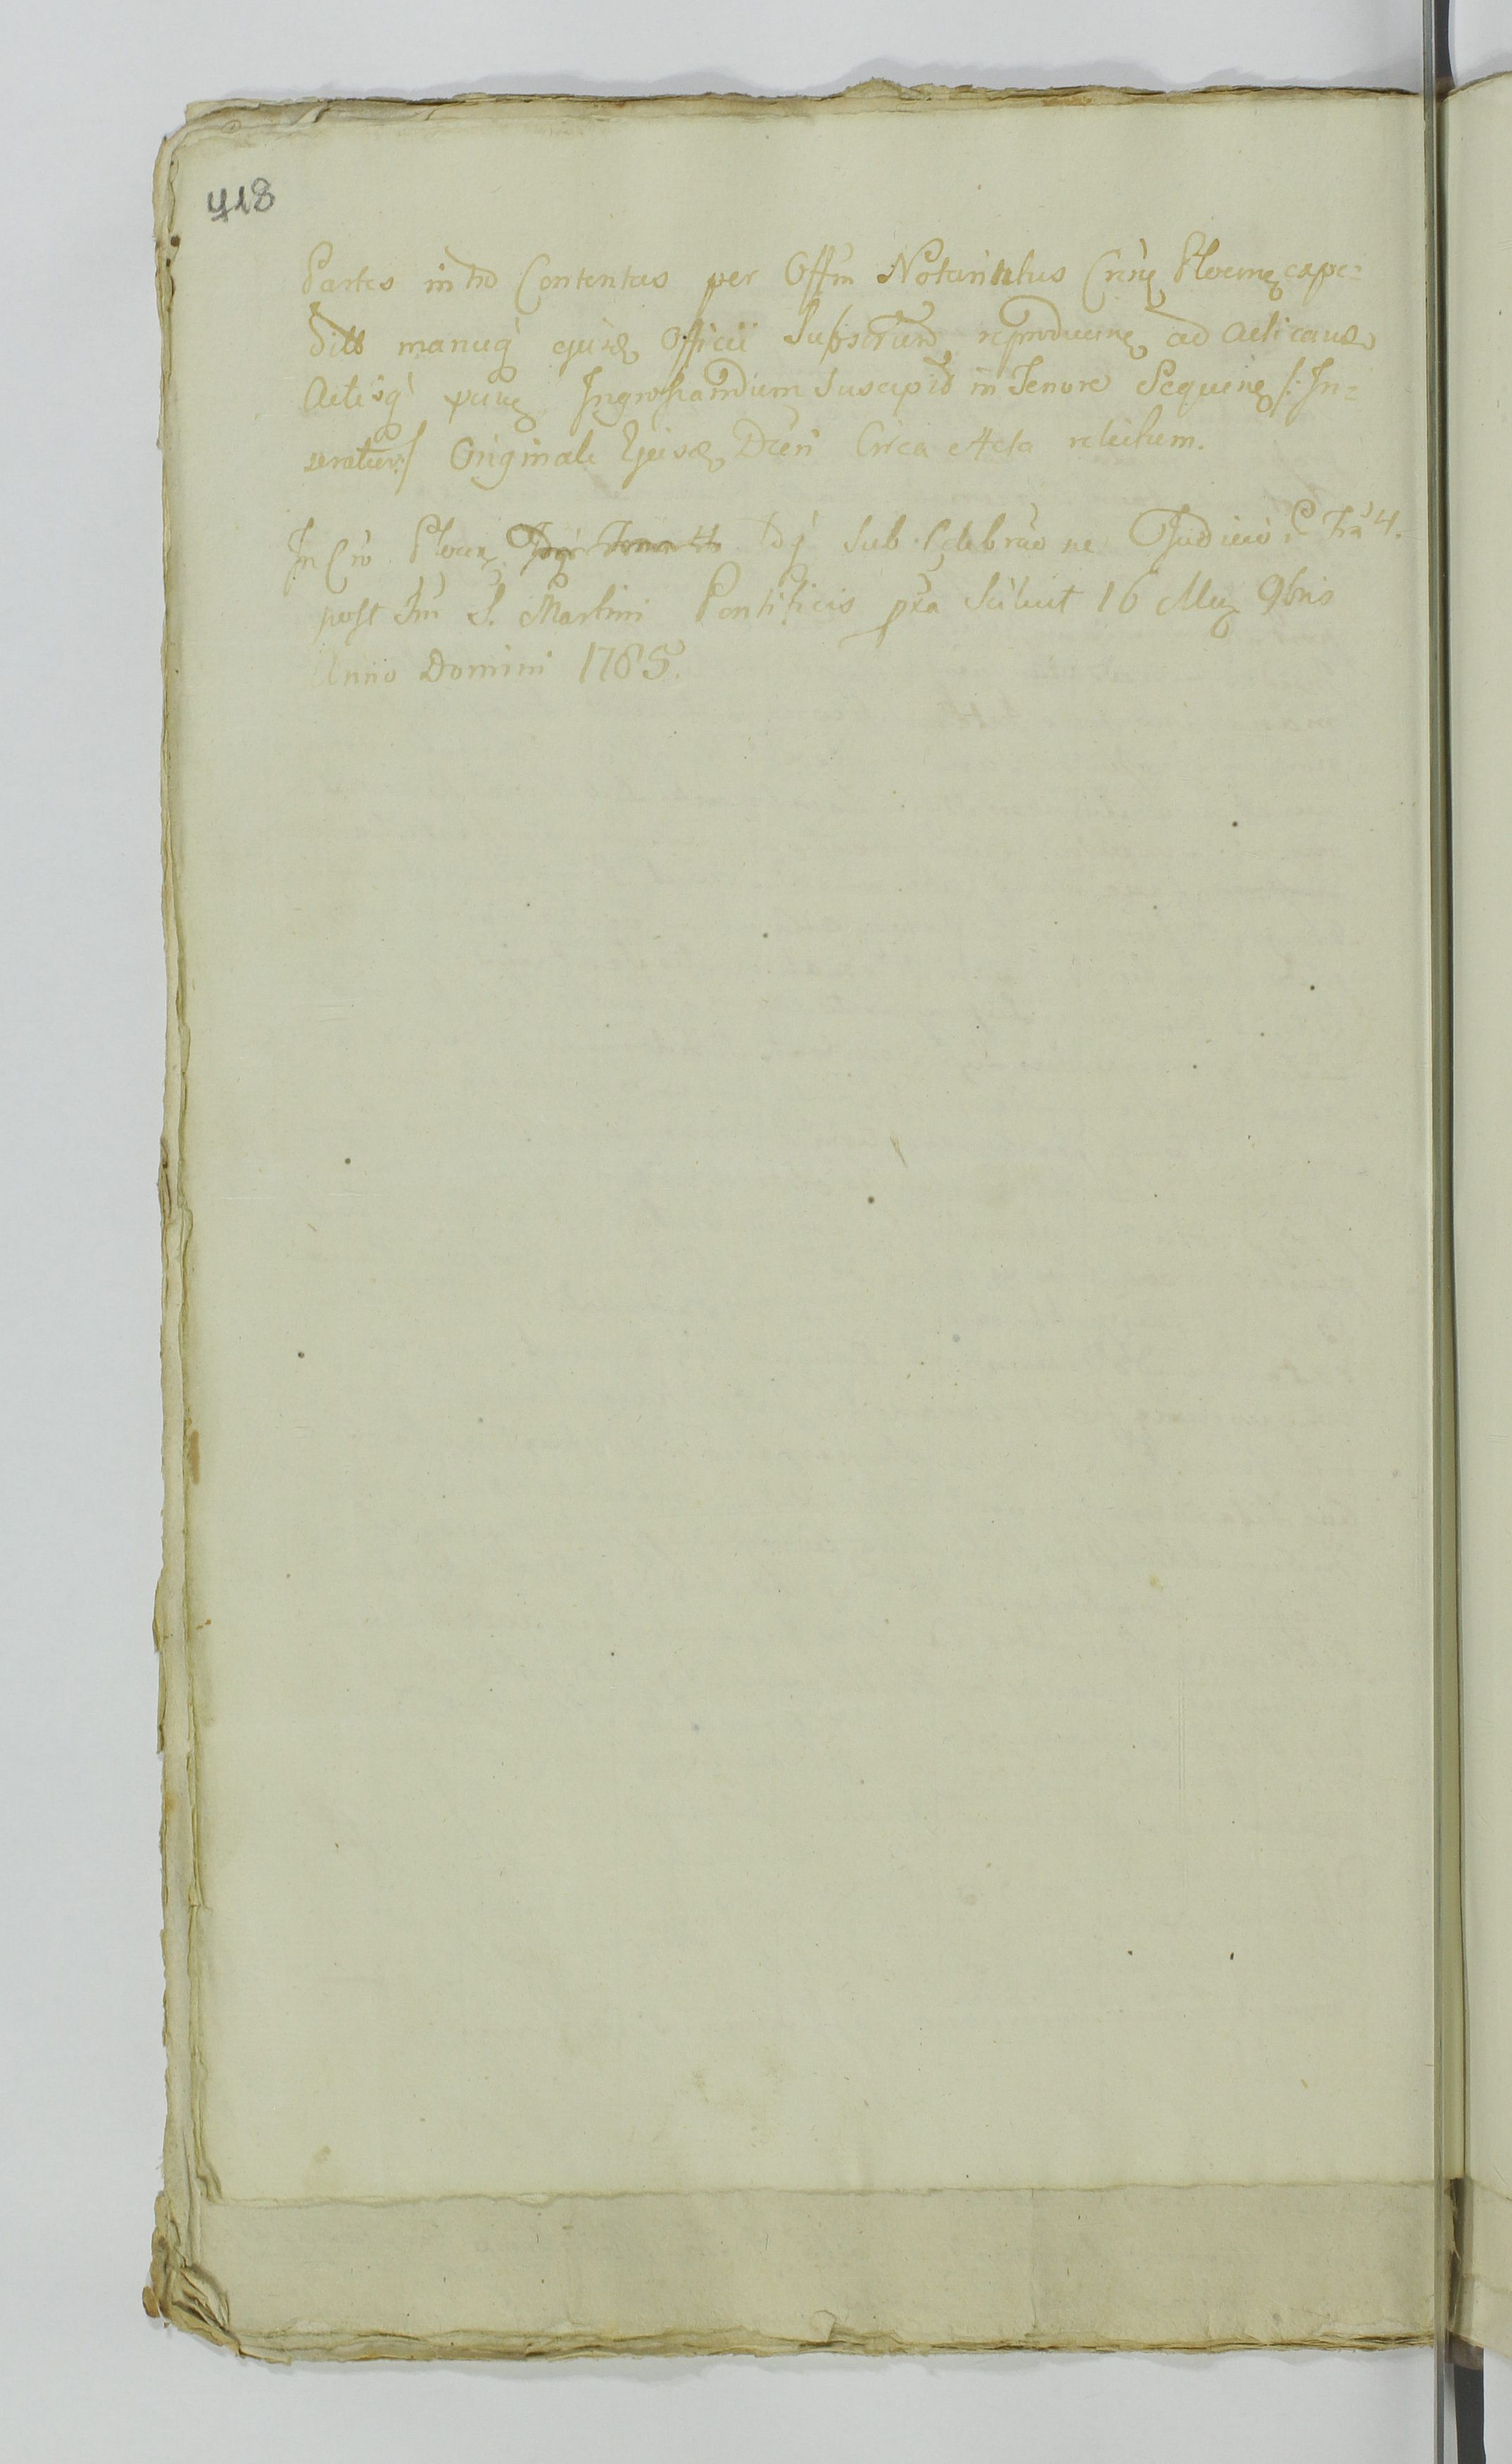 418
Partes intro Contentas per Offm Notariatus Crensę Plocensę expe=
dito manuq̀ ejusdę Officii Subscriptum reproducensę ad acticandū
Actisq̀ psensę Ingrossandum Suscepit in Tenore Sequensę /: In=
seratur :/ Originale Ejusdę Dcti Circa Acta relictum.
In Cro Plocensę toq̀ sub Celebraōne Judicii Fria 4.
post Fm S. Martini Pontificis pxa Scilicet 16 Msę 9bris
Anno Domini 1785.